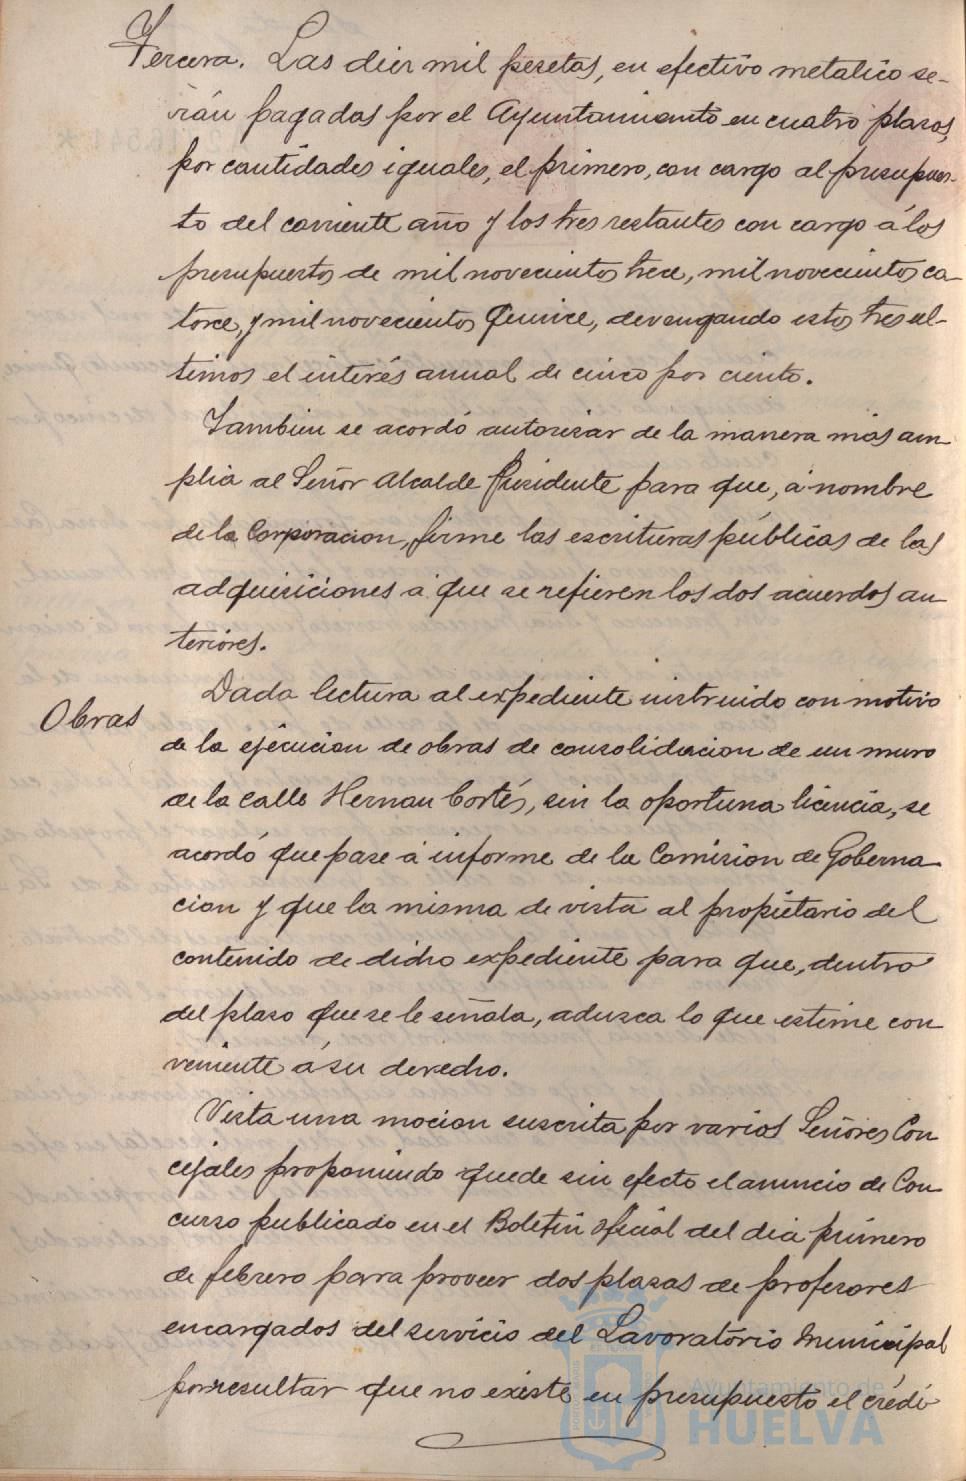 Tercera. Las diez mil pesetas, en efectivo metalico se-
rán pagadas por el Ayuntamiento en cuatro plazos,
por cantidades iguales, el primero, con cargo al presupues-
to del corriente año y los tres restantes con cargo á los
presupuestos de mil novecientos trece, mil novecientos ca-
torce, y mil novecientos quince, devengando estos tres ul-
timos el interés anual de cinco por ciento.
Tambien se acordó autorizar de la manera mas am
plia al Señor Alcalde Presidente para que, á nombre
de la Corporacion, firme las escrituras públicas de las
adquisiciones á que se refieren los dos acuerdos an
teriores.
Obras
Dada lectura al expediente instruido con motivo
de la ejecucion de obras de consolidacion de un muro
de la calle Hernan Cortés, sin la oportuna licencia, se
acordó que pase á informe de la Comision de Goberna
cion y que la misma de vista al propietario del
contenido de dicho expediente para que, dentro
del plazo que se le señala, aduzca lo que estime con
veniente á su derecho.
Vista una mocion suscrita por varios Señores Con
cejales proponiendo quede sin efecto el anuncio de Con
curso publicado en el Boletin oficial del dia primero
de febrero para proveer dos plazas de profesores
encargados del servicio del Lavoratorio Municipal
por resultar que no existe en presupuesto el crédi
Ayuntamiento de
HUELVA